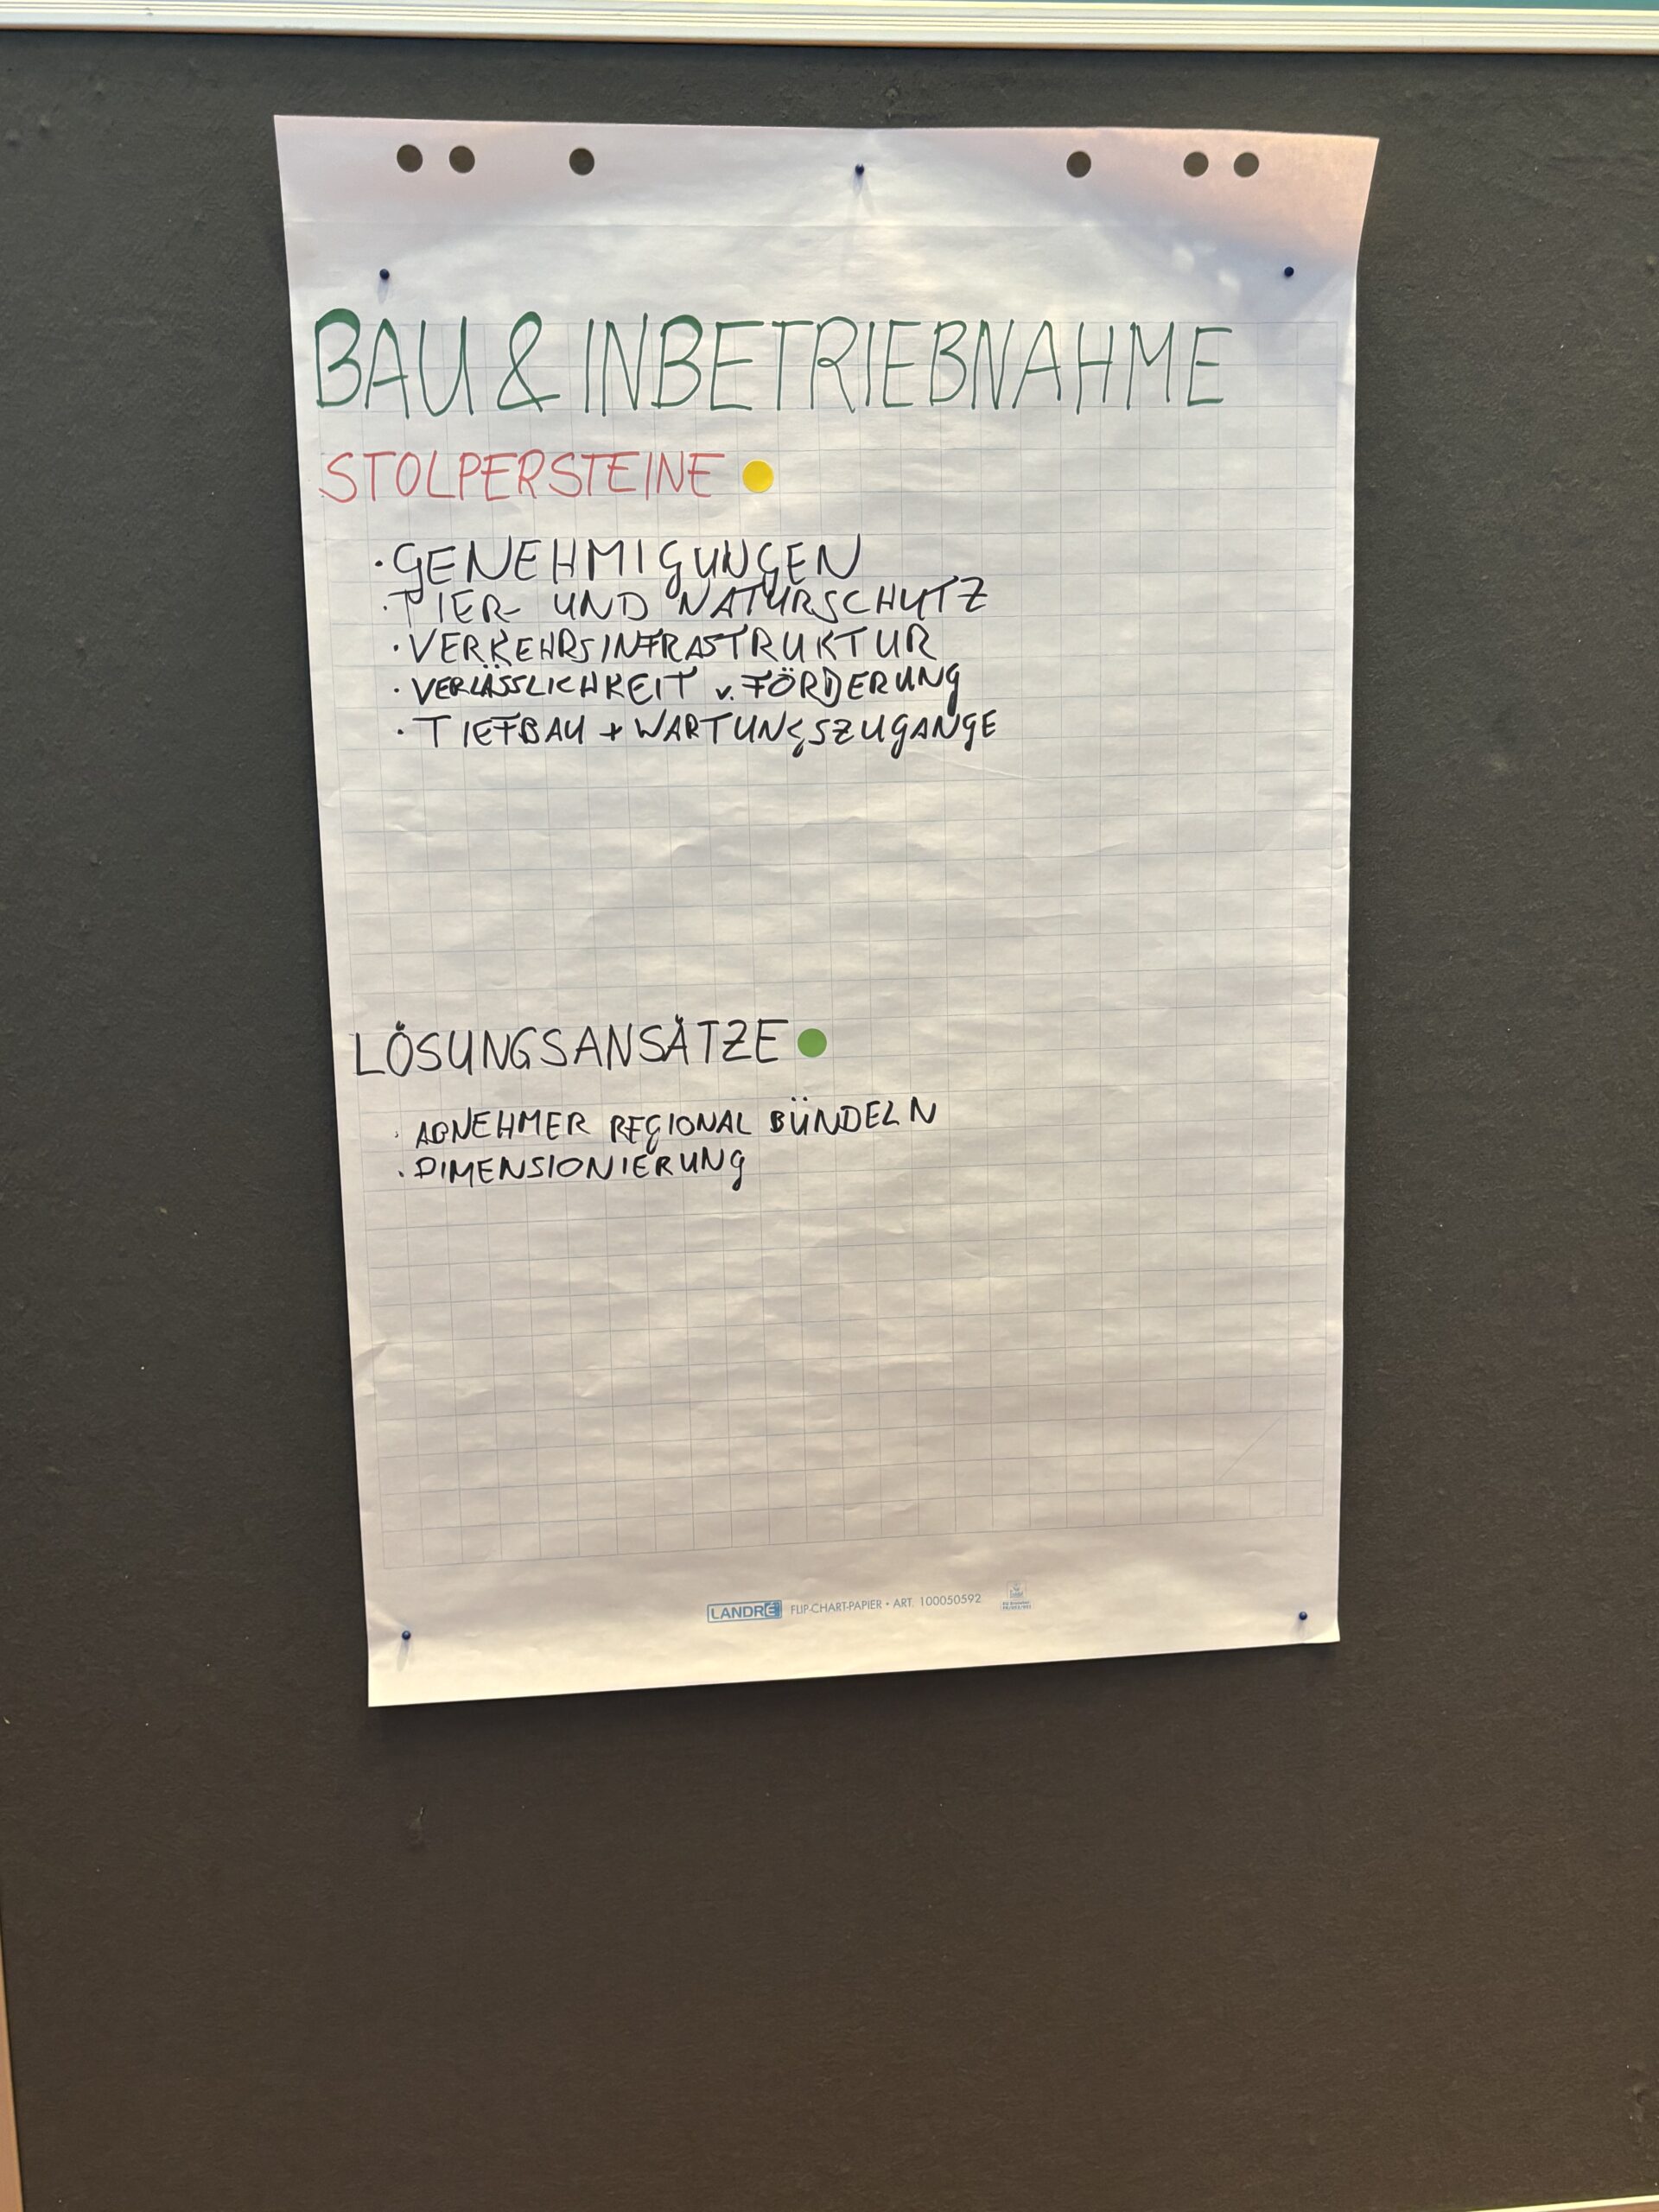 BAU & INBETRIEBNAHME
STOLPERSTEINE
· GENEHMIGUNGEN
· TIER- UND NATURSCHUTZ
· VERKEHRSINFRASTRUKTUR
· VERLÄSSLICHKEIT v. FÖRDERUNG
· TIEFBAU + WARTUNGSZUGANGE
LÖSUNGSANSÄTZE
· ABNEHMER REGIONAL BÜNDELN
· DIMENSIONIERUNG
LANDRÉ FLIP-CHART-PAPIER • ART. 100050592